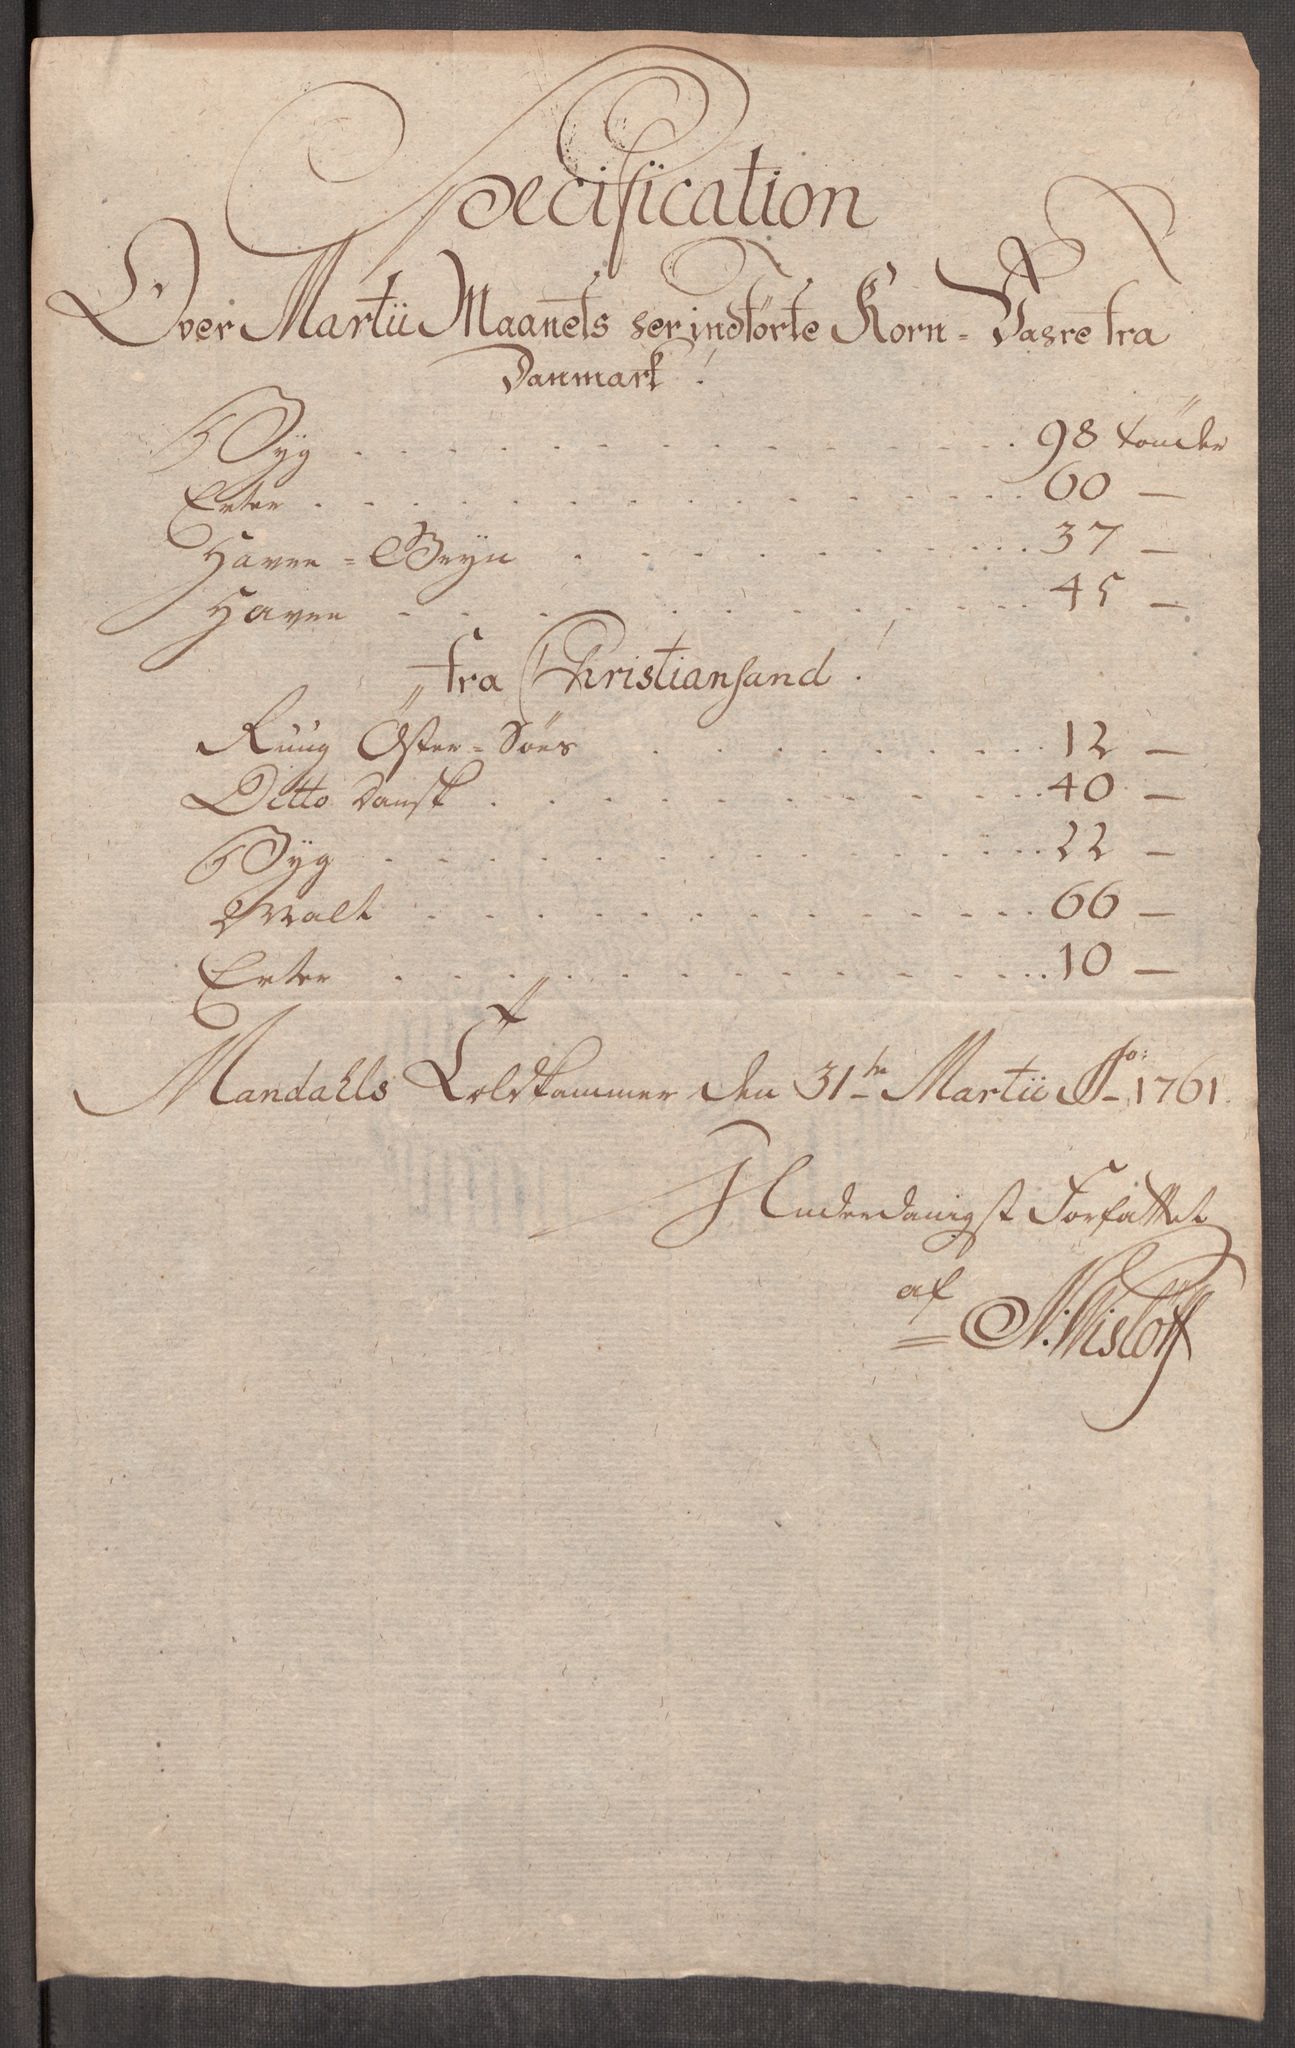 Specification
Over Martii Maanets her indförte Korn-Vahre fra
Danmark.
Byg . . . 98 tönder
Erter . . . 60 —
Havre-Gryn . . . 37 —
Havre . . . 45 —
fra Christiansand.
Ruug Öster-Söes . . . 12 —
Ditto Dansk . . . 40 —
Byg . . . 22 —
Malt . . . 66 —
Erter . . . 10 —
Mandahls Toldkammer den 31te Martii Ao: 1761.
Underdanigst Forfattet
af
N: Wislöff